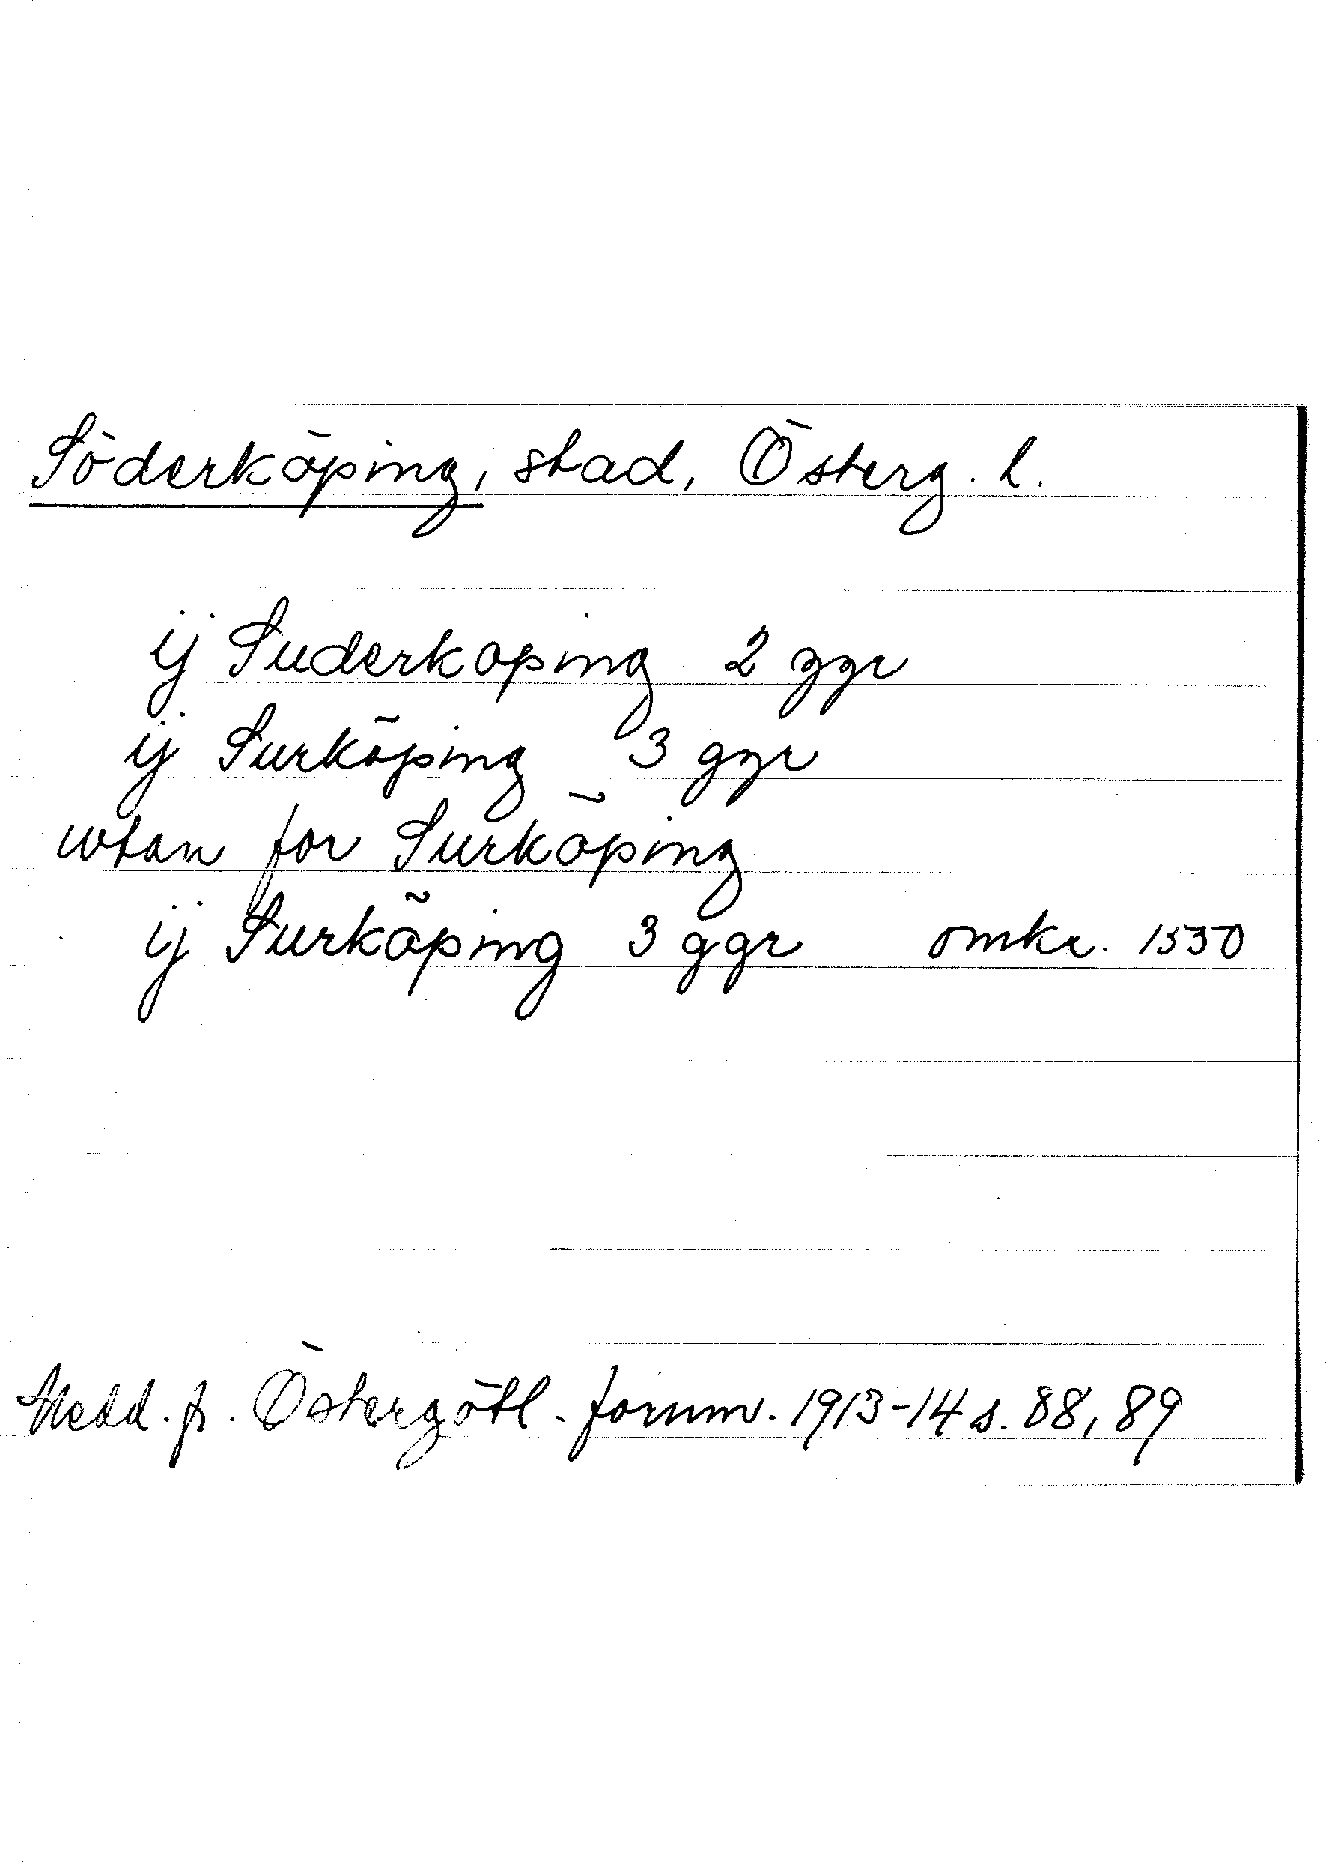 Söderköping, stad, Österg. l.
ij Suderkoping 2 ggr
ij Surköping 3 ggr
wtan for Surköping
ij Surköping 3 ggr omkr. 1530
Medd. fr. Östergötl. fornm. 1913-14 s. 88, 89